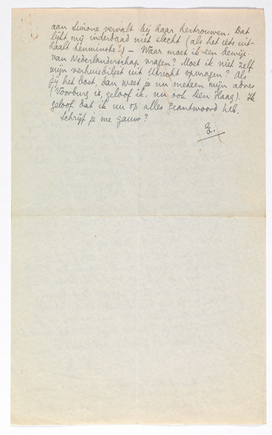 aan Simone vervalt bij haar hertrouwen. Dat
lijkt mij inderdaad niet slecht (als het iets uit-
haalt tenminste!) — Waar moet ik een bewijs
van Nederlanderschap vragen? Moet ik niet zelf
mijn verhuisbiljet uit Utrecht opvragen? Als
jij het doet, dan weet je nu meteen mijn adres
(Voorburg is, geloof ik. nu ook Den Haag). Ik
geloof dat ik nu op alles geantwoord heb.
Schrijf je me gauw?